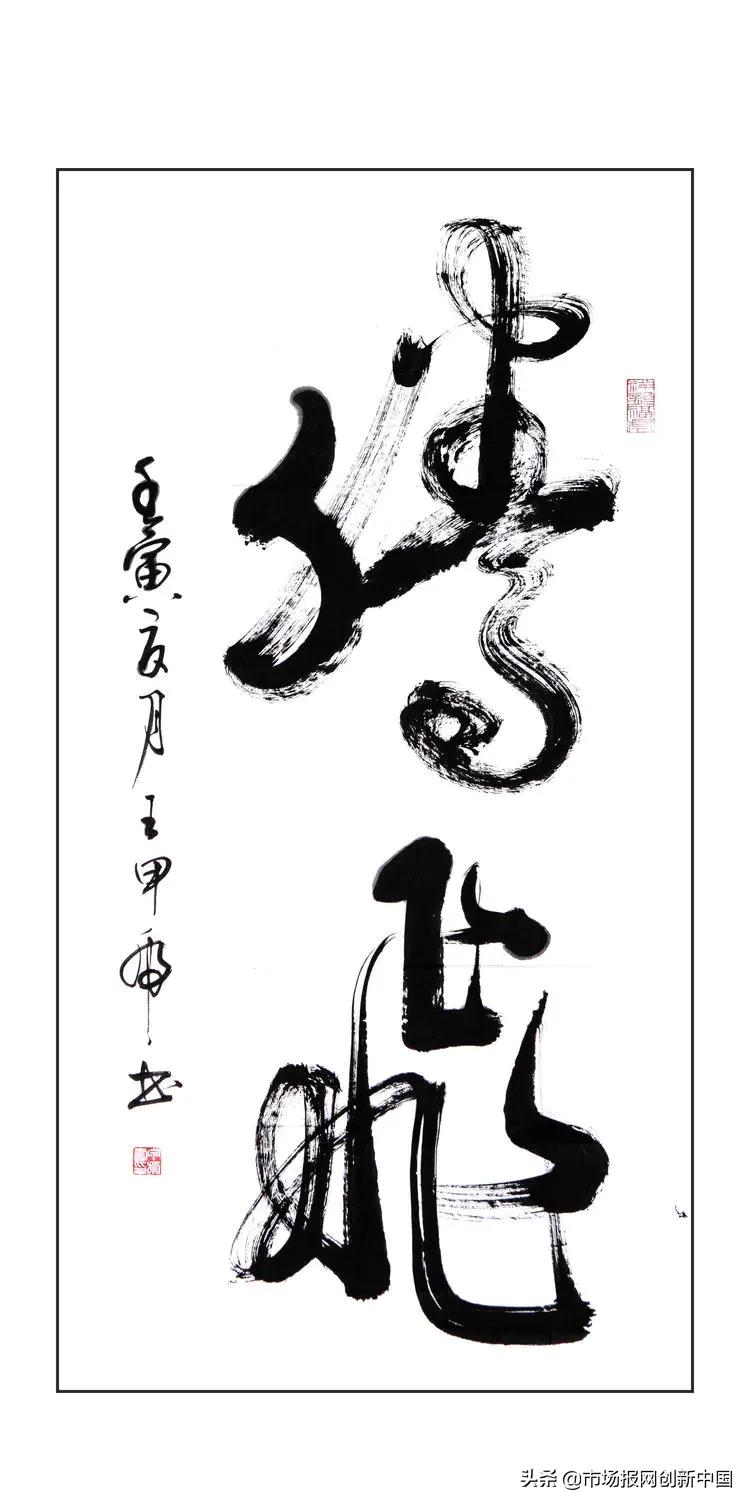 飛
壬寅亥月王甲虎书
头条 @市场报网创新中国